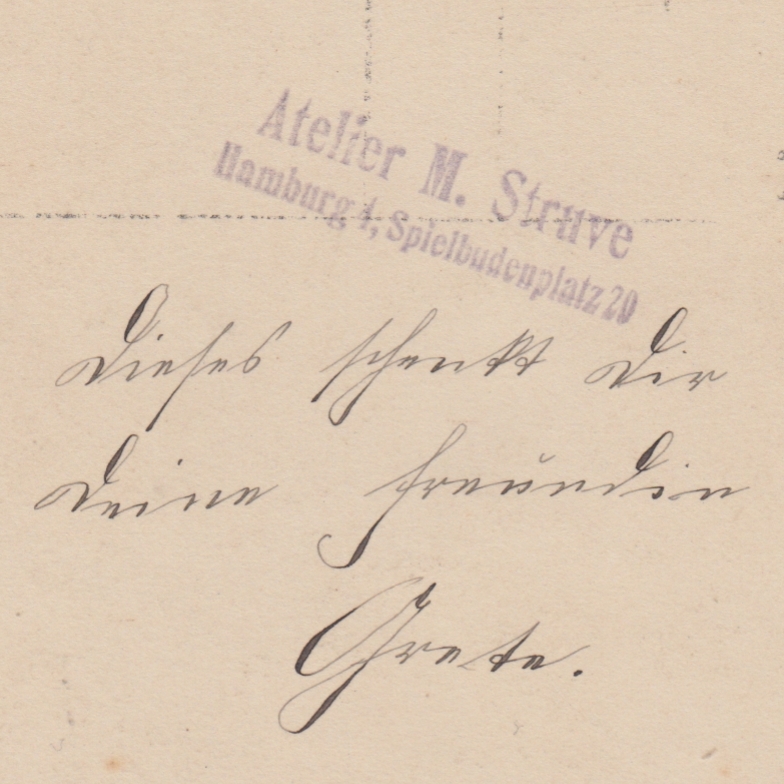 Atelier M. Struve
Hamburg 4, Spielbudenplatz 20
Dieses schenkt Dir
Deine Freundin
Grete.